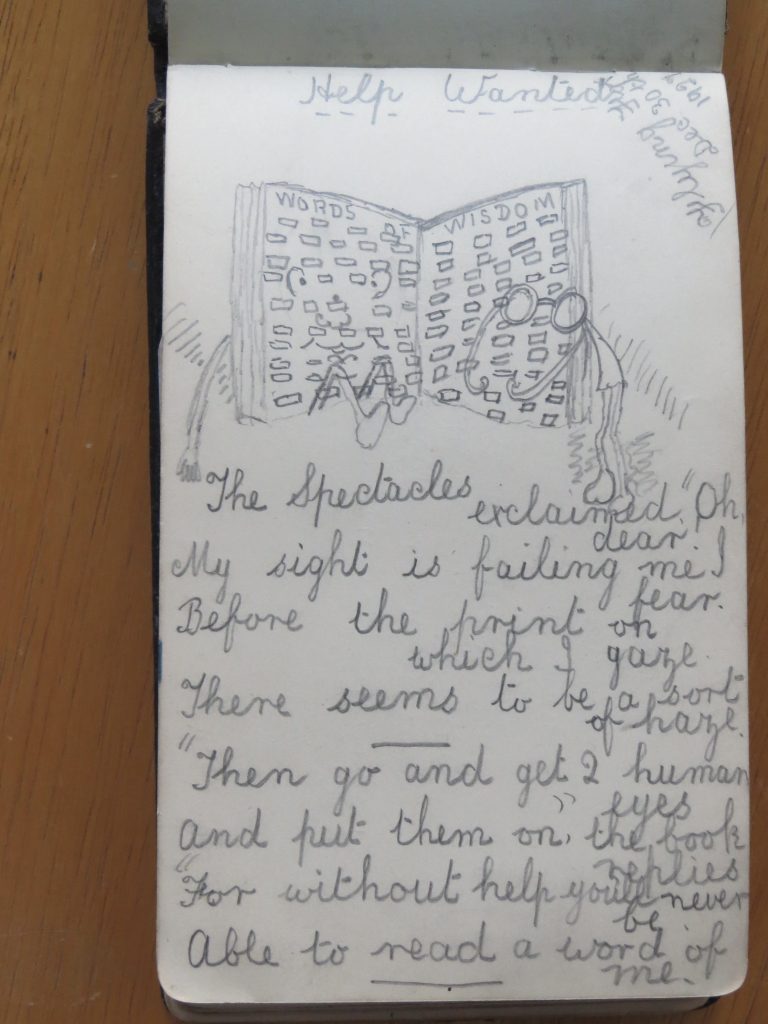 Help Wanted
Dec 30th
WORDS OF WISDOM
The Spectacles exclaimed, "Oh,
dear
My sight is failing me I
fear.
Before the print on
which I gaze
There seems to be a sort
of haze.
"Then go and get 2 human
eyes
and put them on," the book
replies
"For without help you'll never
be
Able to read a word of
me.